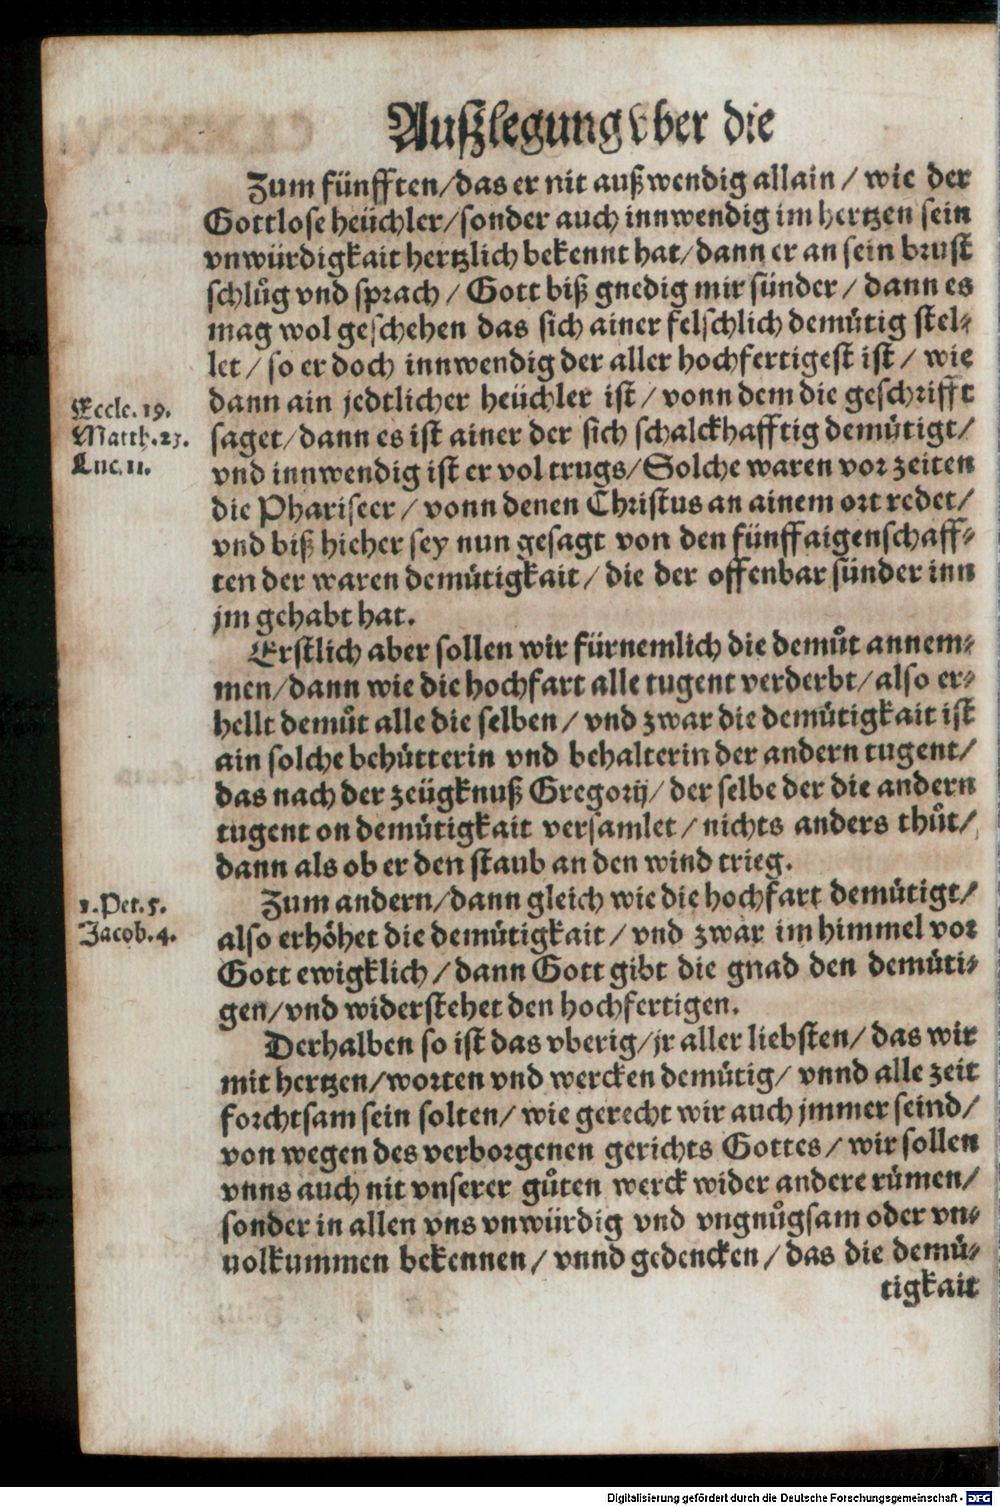 Außlegung vber die
Zum fünfften/das er nit außwendig allain/ wie der
Gottlose heüchler/sonder auch innwendig im hertzen sein
vnwürdigkait hertzlich bekennt hat/dann er an sein brust
schlůg vnd sprach/ Gott biß gnedig mir sünder/ dann es
mag wol geschehen das sich ainer felschlich demütig stel-
let/ so er doch innwendig der aller hochfertigest ist/ wie
dann ain jedtlicher heüchler ist/ vonn dem die geschrifft
saget/dann es ist ainer der sich schalckhafftig demütigt/
vnd innwendig ist er vol trugs/Solche waren vor zeiten
die Phariseer/ vonn denen Christus an ainem ort redet/
vnd biß hieher sey nun gesagt von den fünff aigenschaff-
ten der waren demütigkait/ die der offenbar sünder inn
jm gehabt hat.
Eccle. 19.
Matth. 23.
Luc. 11.
Erstlich aber sollen wir fürnemlich die demůt annem-
men/dann wie die hochfart alle tugent verderbt/also er-
hellt demůt alle die selben/ vnd zwar die demütigkait ist
ain solche behütterin vnd behalterin der andern tugent/
das nach der zeügknuß Gregorij/ der selbe der die andern
tugent on demütigkait versamlet/ nichts anders thůt/
dann als ob er den staub an den wind trieg.
Zum andern/dann gleich wie die hochfart demütigt/
also erhöhet die demütigkait/ vnd zwar im himmel vor
Gott ewigklich/ dann Gott gibt die gnad den demüti-
gen/vnd widerstehet den hochfertigen.
1. Pet. 5.
Jacob. 4.
Derhalben so ist das vberig/jr aller liebsten/ das wir
mit hertzen/worten vnd wercken demütig/ vnnd alle zeit
forchtsam sein solten/ wie gerecht wir auch jmmer seind/
von wegen des verborgenen gerichts Gottes/ wir sollen
vnns auch nit vnserer gůten werck wider andere rümen/
sonder in allen vns vnwürdig vnd vngnůgsam oder vn-
uolkummen bekennen/ vnnd gedencken/ das die demü-
tigkait
Digitalisierung gefördert durch die Deutsche Forschungsgemeinschaft - DFG